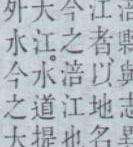 涪縣與志異
江者以地名
今之涪江也
大江水道提
外水今之大